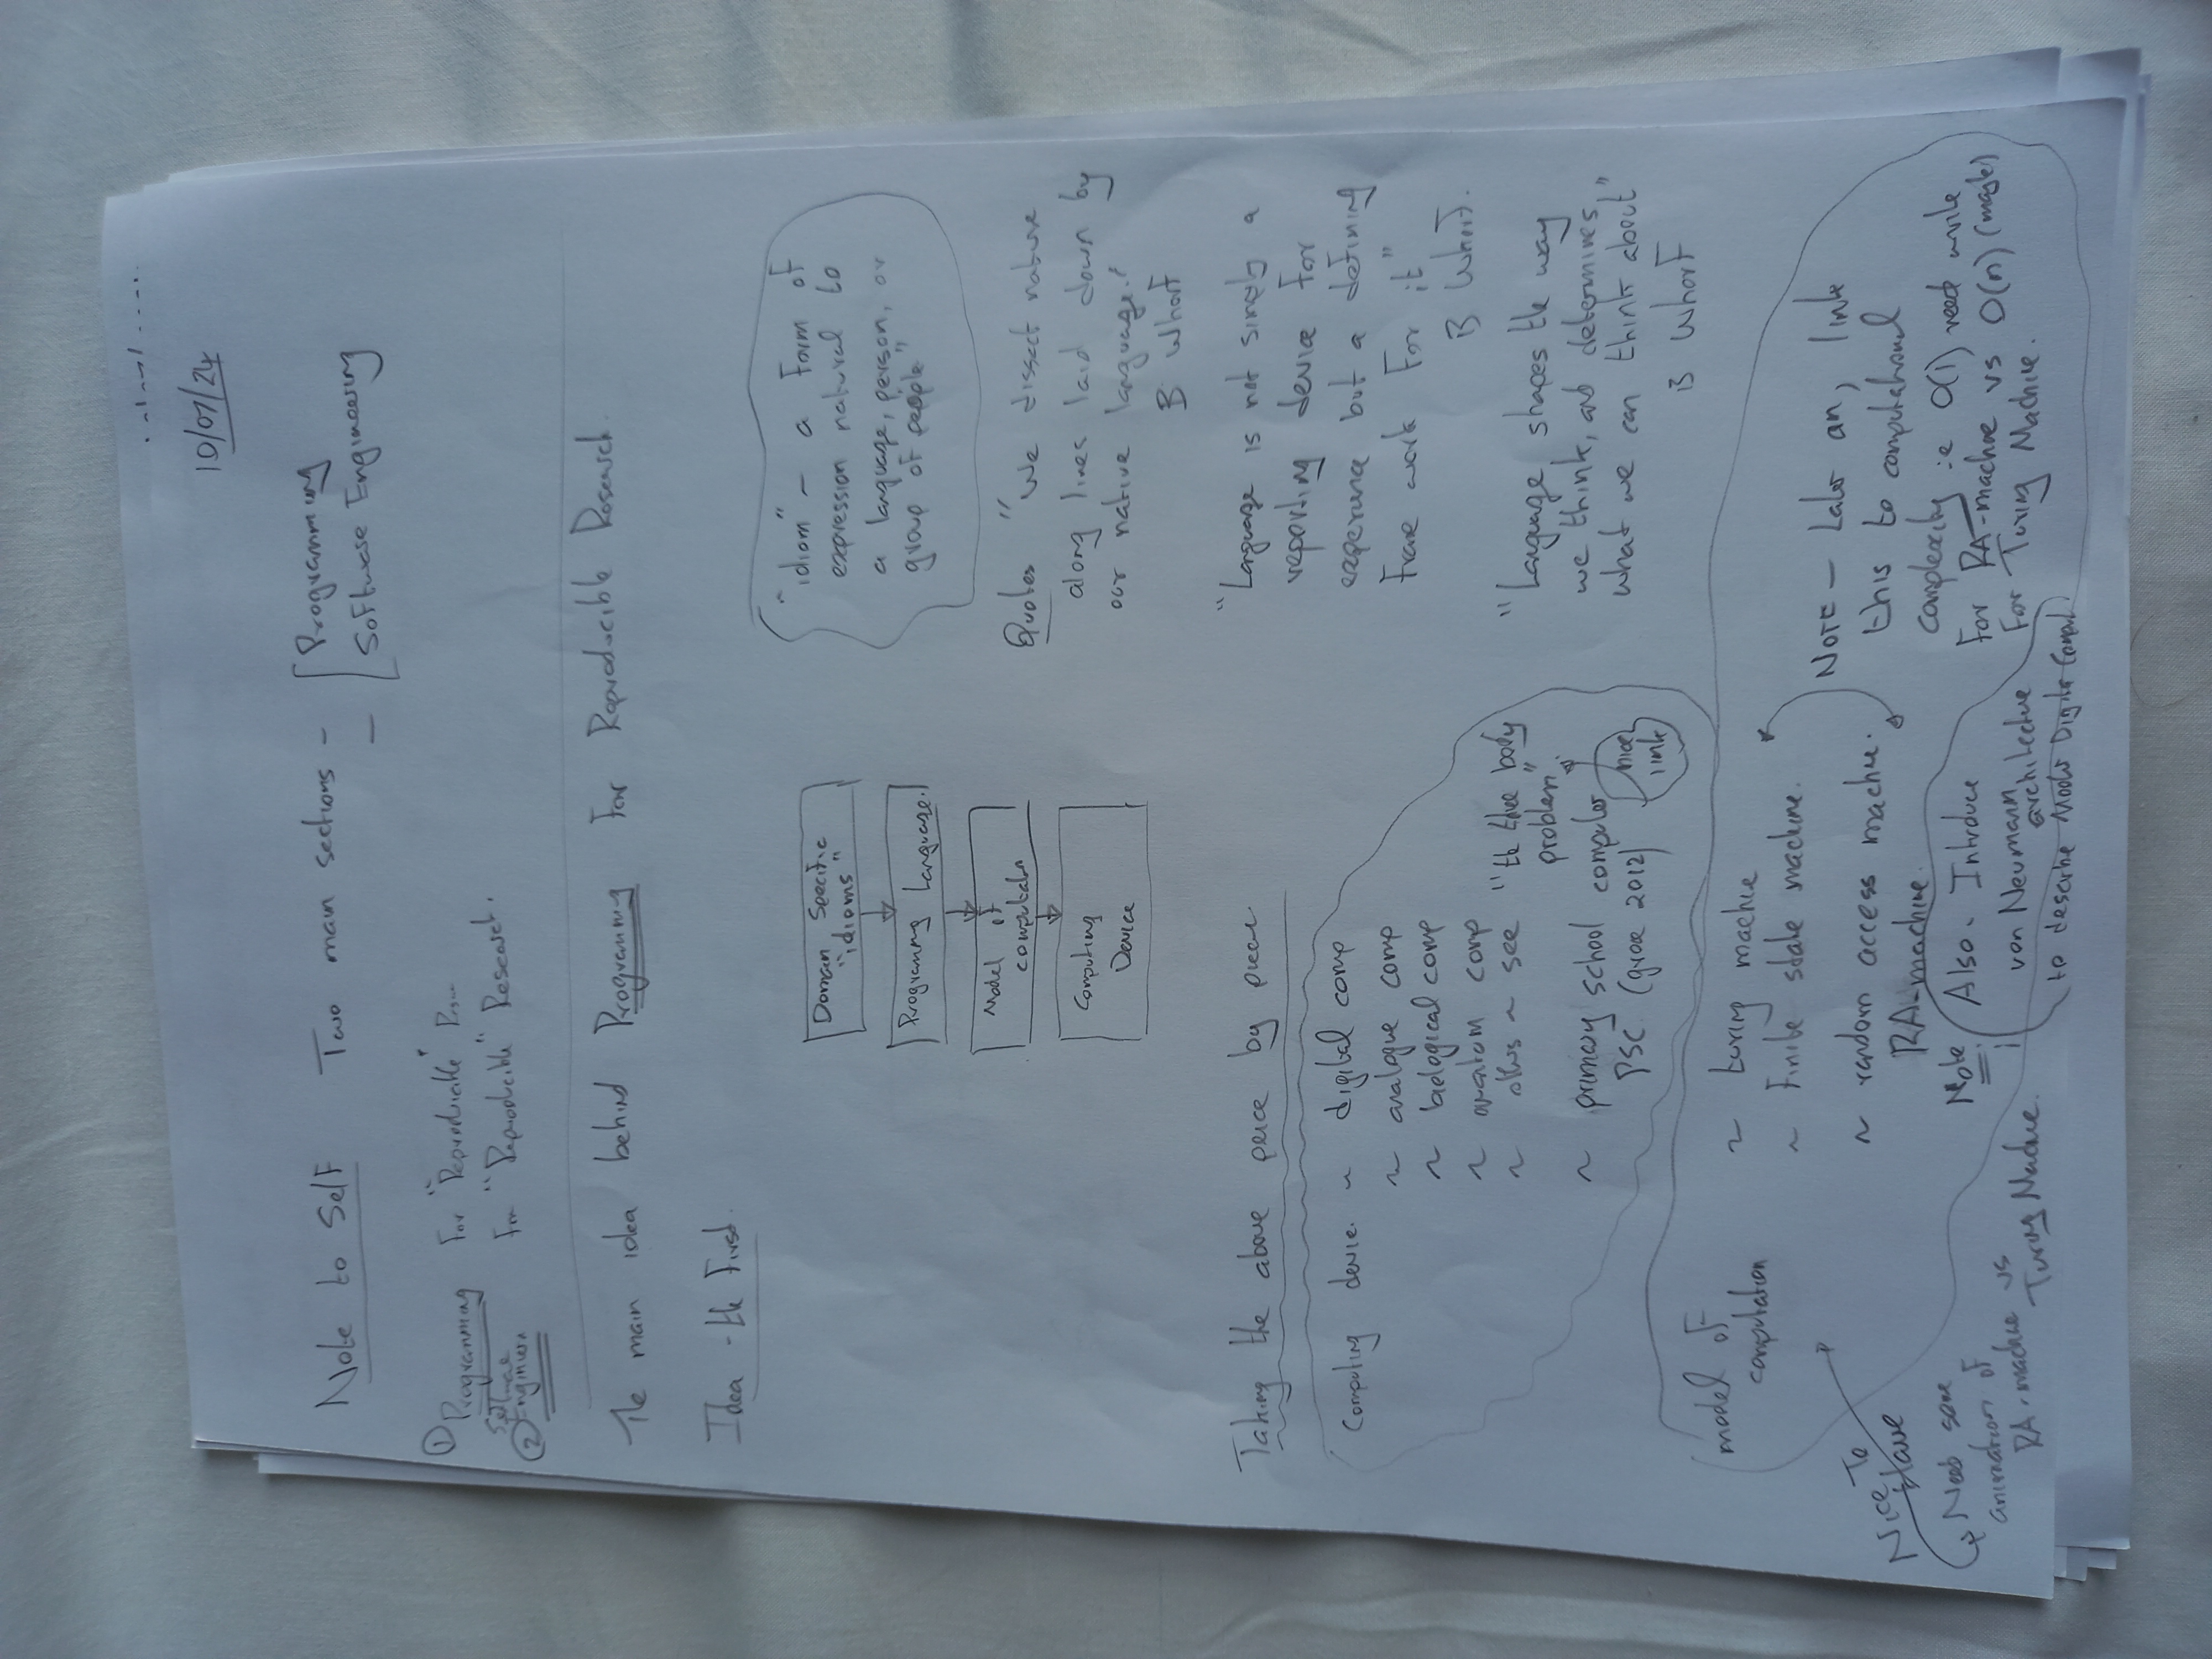 10/07/24
Note to Self Two main sections - Programming
- Software Engineering
① Programming For "Reproducible"
② Software Engineern For "Reproducible" Research.
The main idea behind Programming For Reproducible Research.
Idea - the First.
Domain Specific
"idioms"
Programming Language.
Model of
computation
Computing
Device
"idiom" - a Form of
expression natural to
a language, person, or
group of people"
Quotes "We dissect nature
along lines laid down by
our native language."
B Whorf
"Language is not simply a
reporting device For
experience but a defining
Frame work For it"
B Whorf.
"Language shapes the way
we think, and determines
what we can think about"
B Whorf
Taking the above peice by piece.
Computing device. ~ digital comp
~ analogue comp
~ biological comp
~ quantum comp
~ others ~ see "the three body
problem".
~ primary school computer
PSC (grox 2012)
nice
link
model of
computation
~ turing machine
~ Finite state machine.
~ random access machine.
RA-machine.
NOTE - Later on, link
this to computational
complexity ie O(1) read write
For RA-machine vs O(n) (maybe)
For Turing Machine.
Nice To
Have
Need some
animation of
RA-machine vs
Turing Machine.
Note
Also. Introduce
von Neumann
architecture
to describe Modern Digital Comput